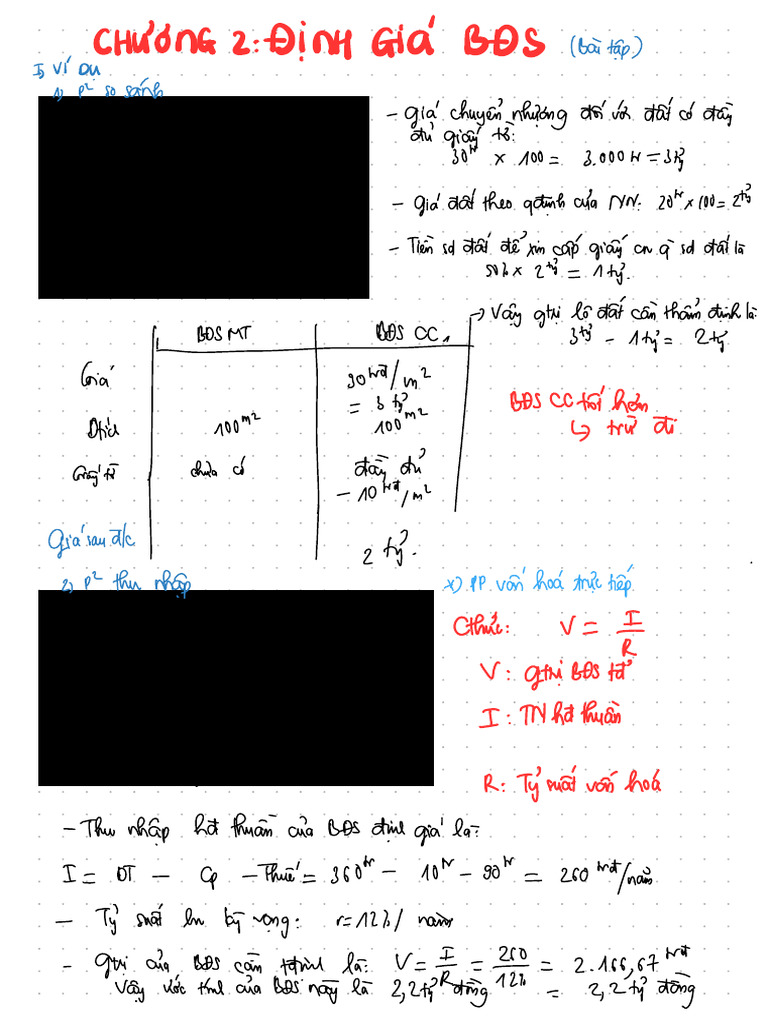 CHƯƠNG 2: ĐỊNH GIÁ BĐS (Bài tập)
I, Ví Dụ
1) P² so sánh
- Giá chuyển nhượng đối với đất có đầy
đủ giấy tờ:
30tr x 100 = 3.000tr = 3 tỷ
- Giá đất theo qđịnh của NN: 20tr x 100 = 2 tỷ
- Tiền sd đất để xin cấp giấy cn q sd đất là
50% x 2 tỷ = 1 tỷ.
→ Vậy gtrị lô đất cần thẩm định là:
3 tỷ - 1 tỷ = 2 tỷ
BĐS MT BĐS CC1
Giá 30 trđ/m²
= 3 tỷ
Dtích 100 m² 100 m²
Giấy tờ chưa có đầy đủ
- 10 trđ/m²
Giá sau đ/c 2 tỷ.
BĐS CC tốt hơn
↳ trừ đi
2) P² thu nhập
x) PP vốn hoá trực tiếp
Cthức: V = I/R
V: gtrị BĐS tđ
I: TN hđ thuần
R: Tỷ suất vốn hoá
- Thu nhập hđ thuần của BĐS định giá là:
I = DT - Cp - Thuế = 360tr - 10tr - 90tr = 260 trđ/năm
- Tỷ suất ln kỳ vọng: r = 12%/năm
- Gtrị của BĐS cần tđịnh là: V = I/R = 260/12% = 2.166,67 trđ
Vậy ước tính của BĐS này là 2,2 tỷ đồng = 2,2 tỷ đồng